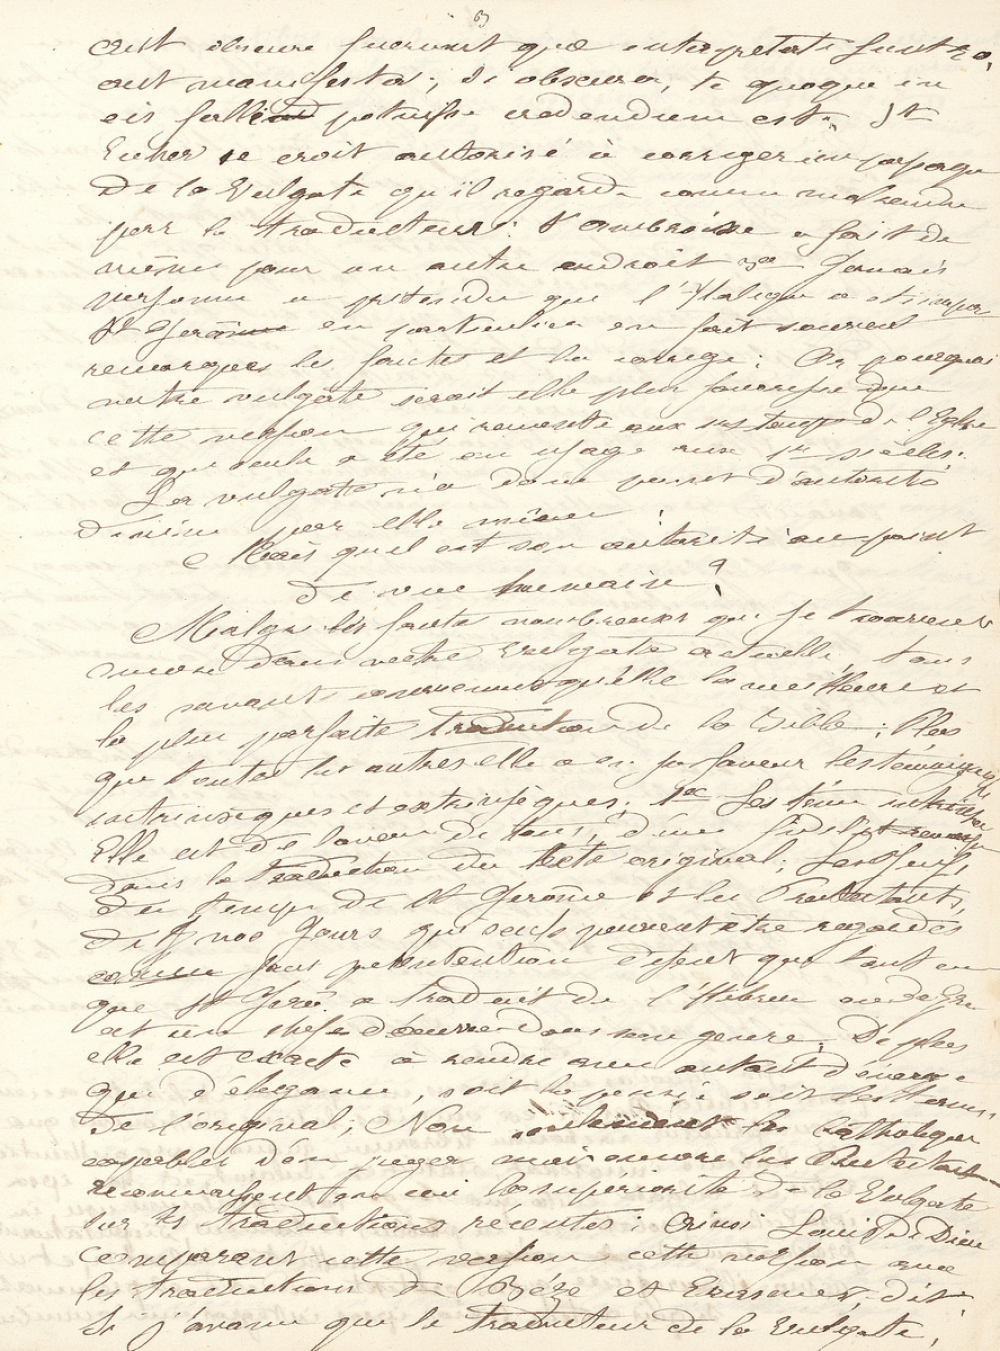 aut obscura fuerunt quæ interpretati sunt 70,
aut manifesta; si obscura, te quoque in
eis falli potuisse credendum est. St
Eucher se croit autorisé à corriger un passage
de la Vulgate qu'il regarde comme mal rendu
par le traducteur: St ambroise a fait de
même pour un autre endroit Jamais
personne a prétendu que l'Italique a été
St Jérôme en particulier en fait souvent
remarquer les fautes et la corrige: Or pourquoi
notre vulgate serait elle plus que
cette version qui remonte aux 1ers temps de l'Eglise
et qui seule a été en usage aux 1ers siècles.
La vulgate n'a donc point d'autorité
divine par elle même.
Mais quel est son autorité au point
de vue humain?
Malgré les fautes nombreuses qui se trouvent
encore dans notre Vulgate actuelle, tous
les savants conviennent qu'elle la meilleure et
la plus parfaite traduction de la Bible: Plus
que toutes les autres elle a en sa faveur les témoignages
intrinsèques et extrinsèques. Les tém
Elle est de l'aveu de tous, d'une fidélité
dans la traduction du texte original; Les Juifs,
du temps de St Jerôme et les Protestants,
de nos Jours qui seuls peuvent être regardés
comme sans disent que tout ce
que St Jérô. a traduit de l'Hébreu ou de
est un chef d'œuvre dans son genre. De plus
elle est exacte à rendre avec autant d'énergie
que d'élégance, soit la pensée soit les termes
de l'original; Non seulement les Catholiques
capables d'en juger mais encore les Protestants
reconnaissent la supériorité de la Vulgate
sur les traductions récentes; Ainsi Louis de Dieu
comparant cette version cette version avec
les traductions de Bèze et Erasmes, dit:
Si j'avance que le traducteur de la Vulgate,